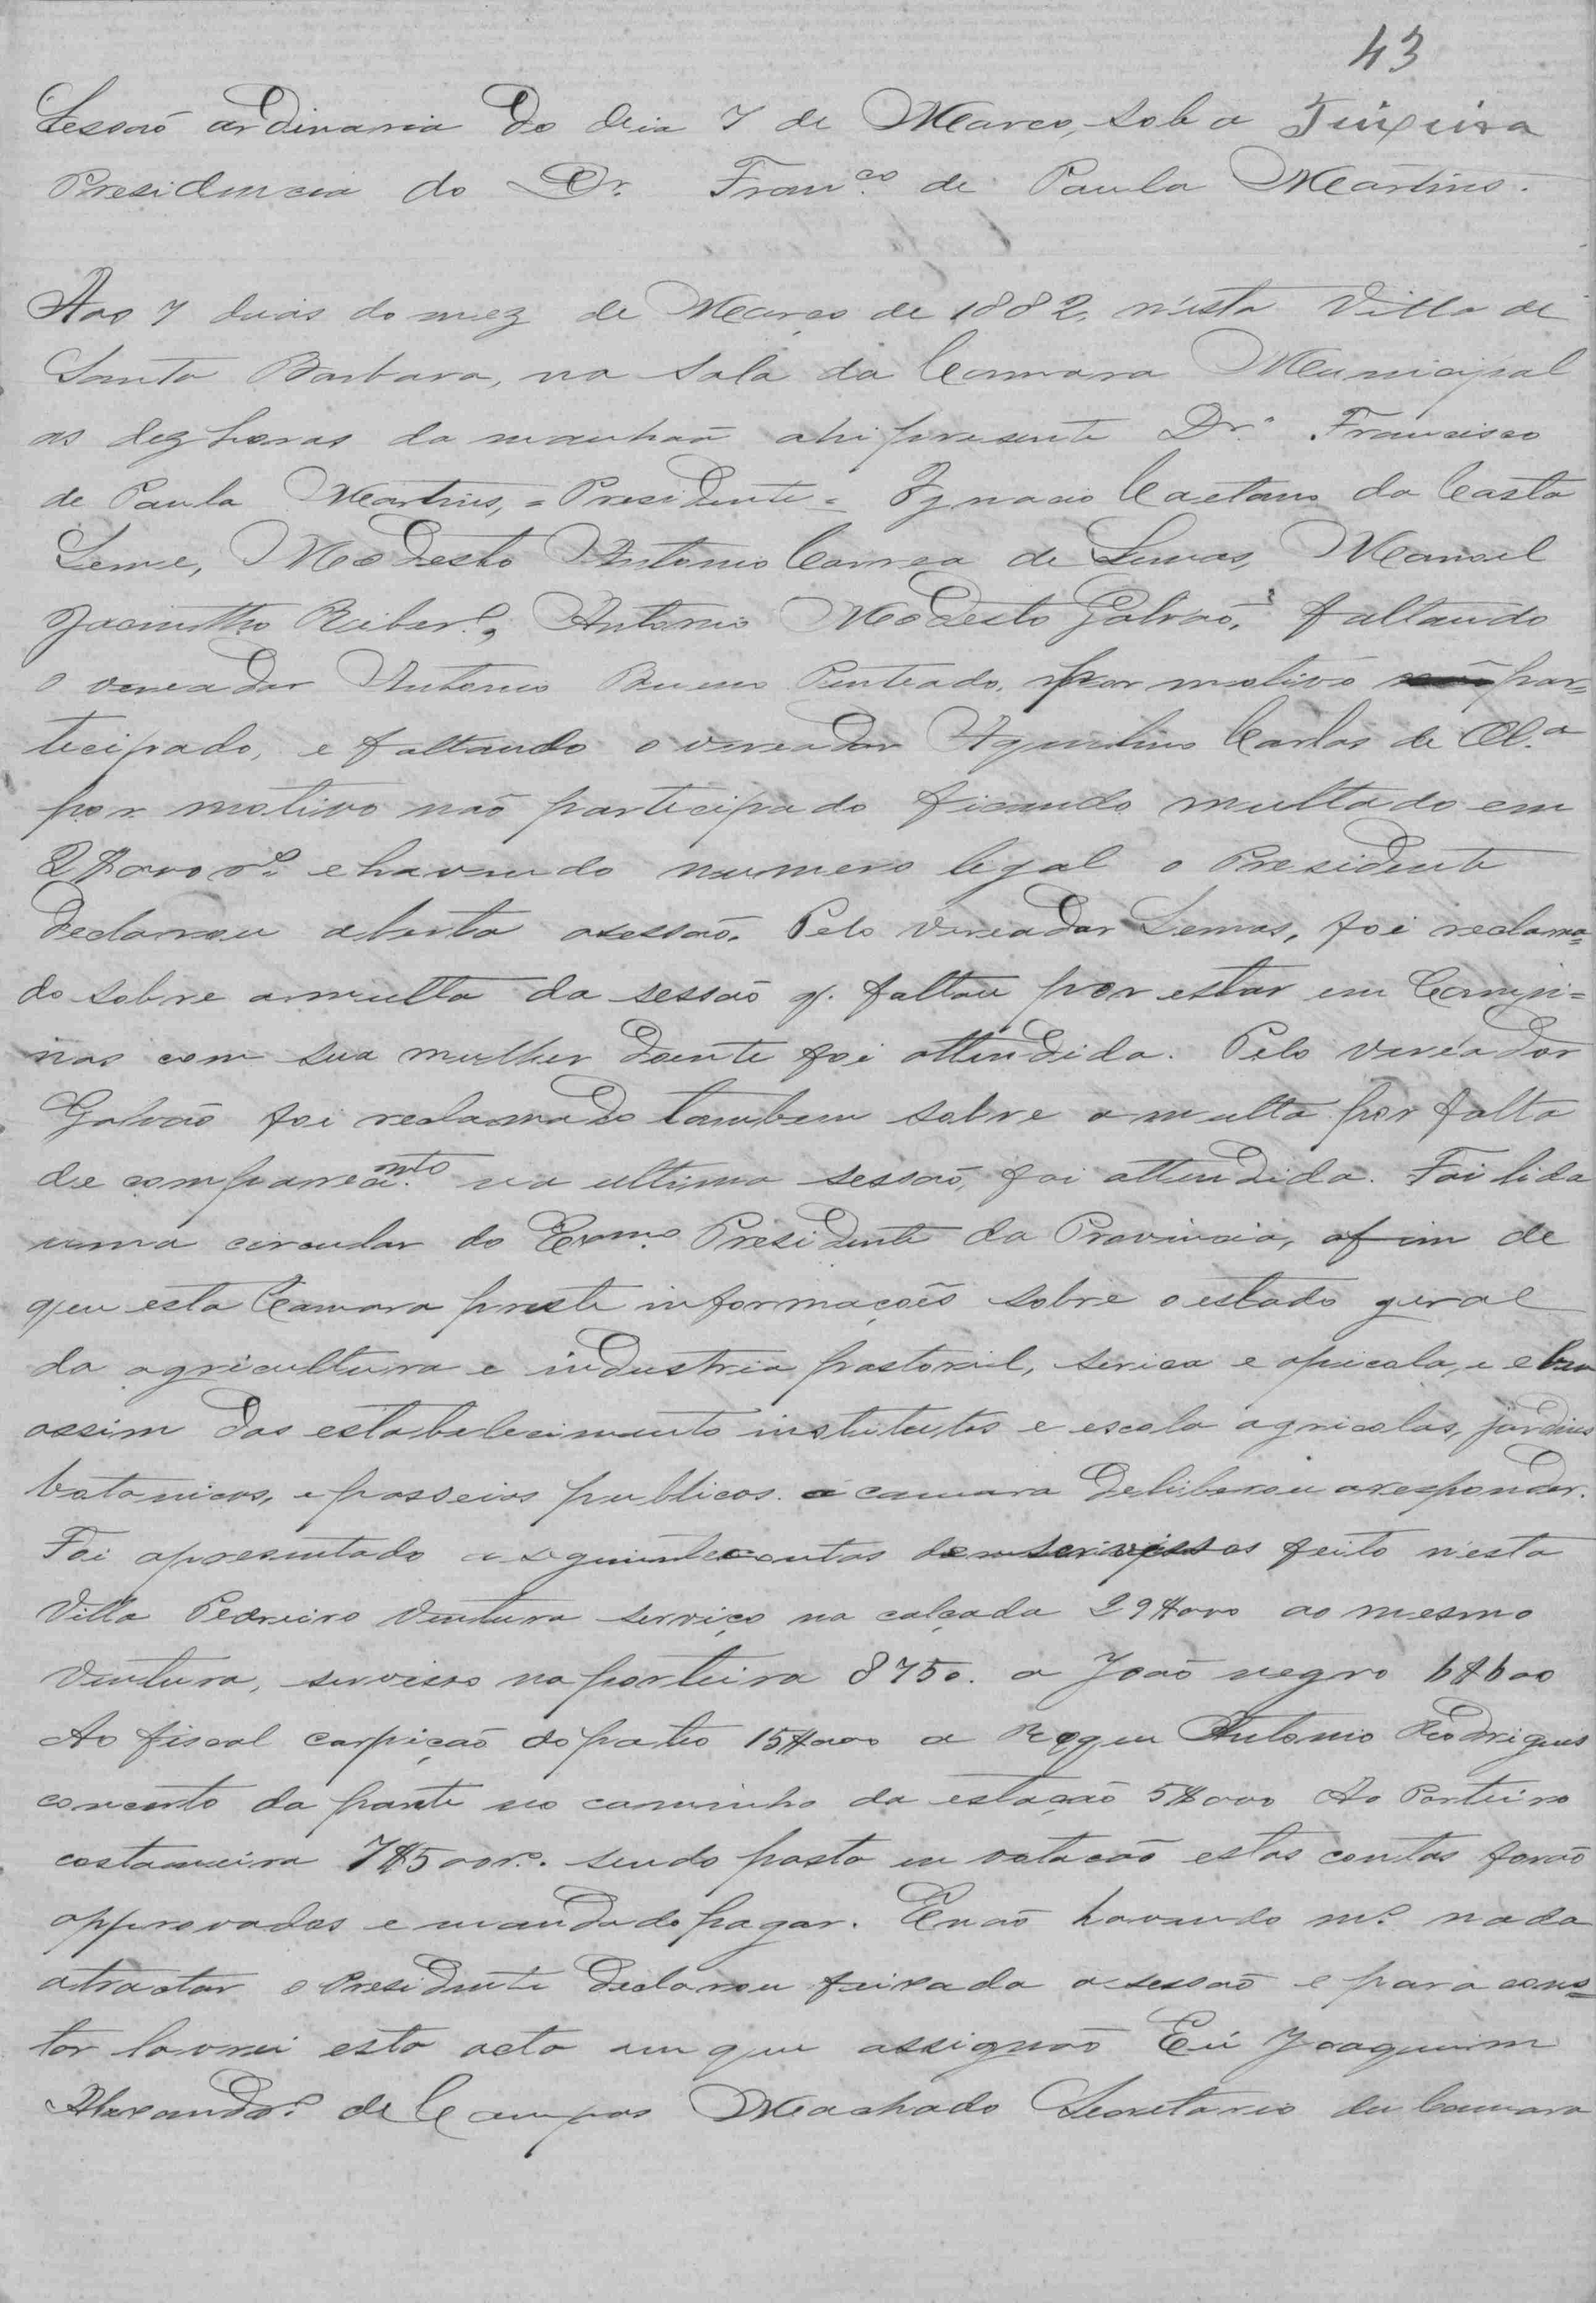 43
Sessaõ ordinaria do dia 7 de Março, sob a Teixeira
Presidencia do Dr. Fran.co de Paula Martins.
Aos 7 dias do mez de Março de 1882, n'esta Villa de
Santa Barbara, na sala da Camara Municipal
as dez horas da manhaã ahi presente Dr. Francisco
de Paula Martins, = Presidente = Ignacio Caetano da Costa
Leme, Modesto Antonio Correa de Lemos, Manoel
Jacinttho Riber.o, Antonio Modesto Galvaõ, faltando
o vereador Antonio Bueno Penteado, por motivo par=
ticipado, e faltando o vereador Aquilino Carlos de Ol.a
por motivo naõ participado ficando multado em
2$000 r.s e havendo numero legal o Presidente
declarou aberta a sessaõ. Pelo vereador Lemos, foi reclama=
do sobre a multa da sessaõ q. faltou por estar em Campi=
nas com sua mulher doente foi attendida. Pelo vereador
Galvaõ foi reclamado tambem sobre a multa por falta
de comparecim.to na ultima sessaõ, foi attendida. Foi lida
uma circular do Exm.o Presidente da Provincia, afim de
que esta Camara preste informaçoẽs sobre o estado geral
da agricultura e industria pastoril, serica e apicola, e e bem
assim dos estabelecimento institutos e escola agricolas, jardins
botanicos, e passeios publicos. a camara deliberou a responder.
Foi apresentado a seguinte contas de serviços feito n'esta
Villa Pedreiro Ventura serviço na calçada 29$000 ao mesmo
Ventura, servisso na porteira 8750. a Joaõ negro 6$600
Ao fiscal carpiçaõ do pateo 15$000 a Roque Antonio Rodrigues
concerto da ponte no caminho da estaçaõ 5$000 Ao Porteiro
costaneira 7$500 r.s. sendo posta em votacaõ estas contas foraõ
approvadas e mandado pagar. E naõ havendo m.s nada
a tractar o Presidente declarou feixada a sessaõ e para cons=
tar lavrei esta acta em que assignaõ Eu Joaquim
Alexandr.e de Campos Machado Secretario da Camara